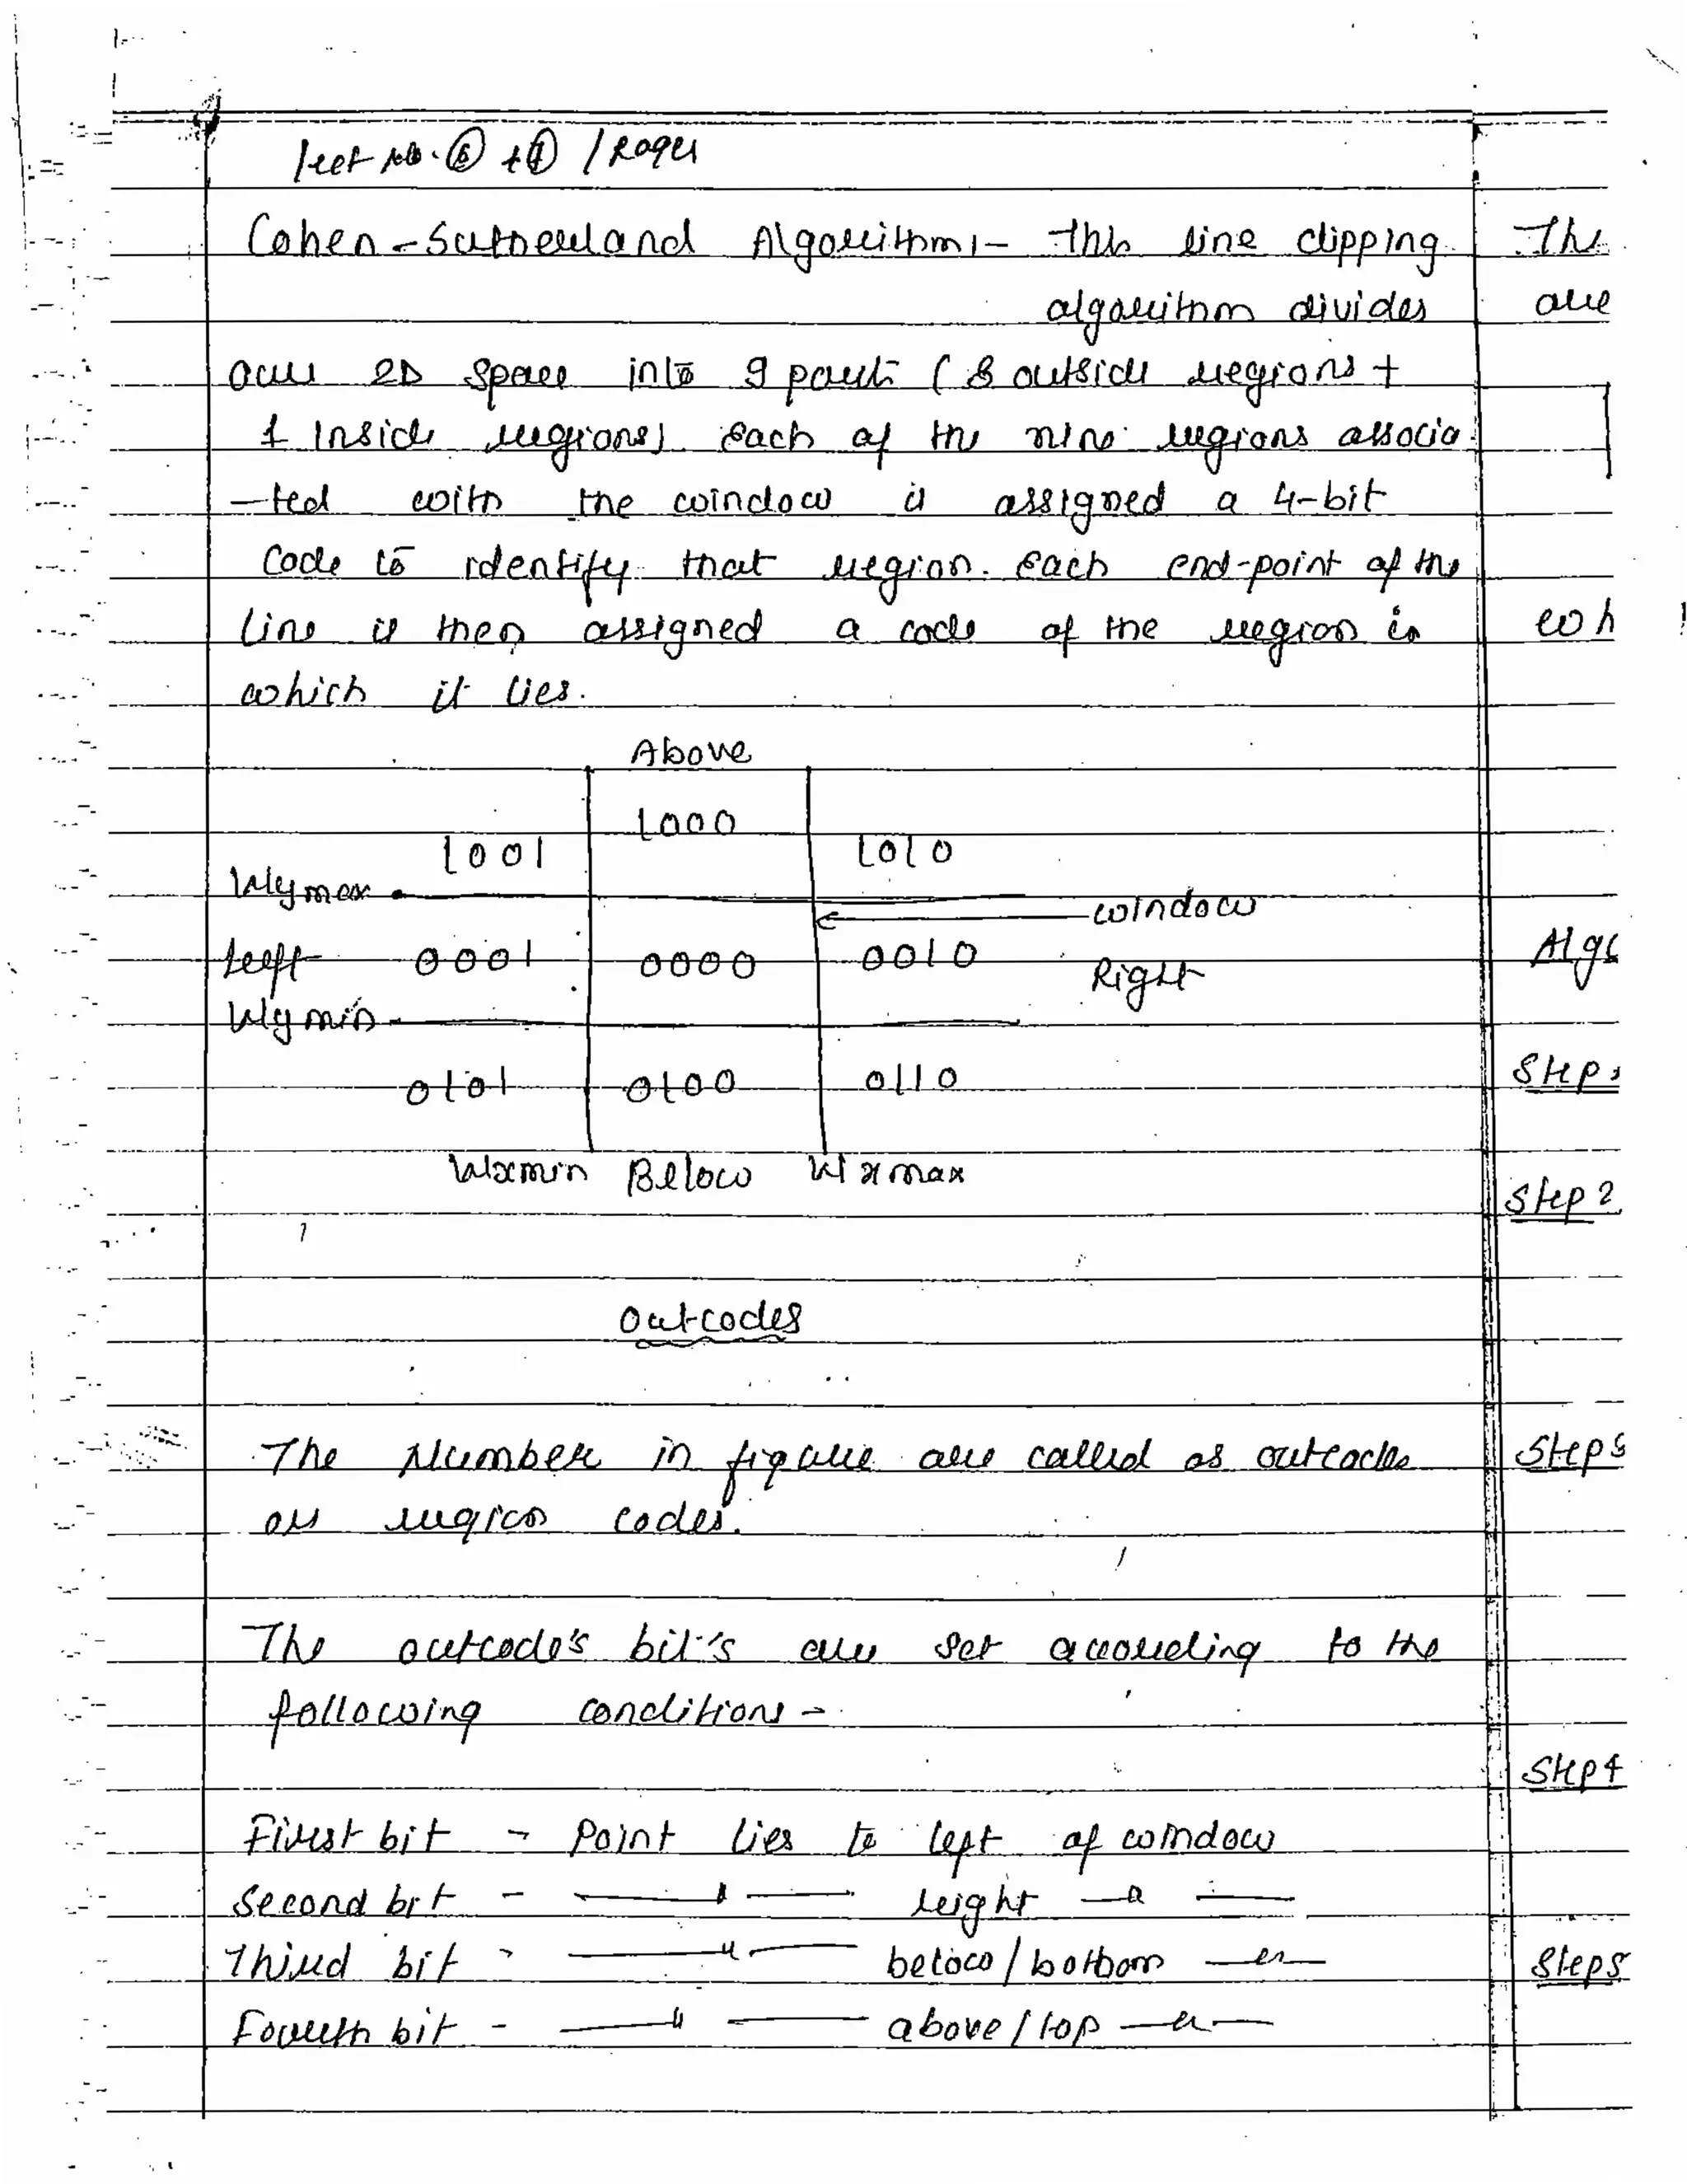 Cohen-Sutherland Algorithm:- This line clipping
algorithm divides
our 2D space into 9 parts (8 outside regions +
1 inside regions). Each of the nine regions associa
-ted with the window is assigned a 4-bit
code to identify that region. Each end-point of the
line is then assigned a code of the region in
which it lies.
Above
1000
1001 1010
Wymax
window
Left 0001 0000 0010
Right
Wymin
0101 0100 0110
Wxmin Below Wxmax
Outcodes
The Number in figure are called as outcodes
or region codes.
The outcode's bit's are set according to the
following conditions -
First bit - Point lies to left of window
Second bit - —"— right —"—
Third bit - —"— below/bottom —"—
Fourth bit - —"— above/top —"—
The
are
wh
Algo
Step
Step 2
Step 3
Step 4
Step 5